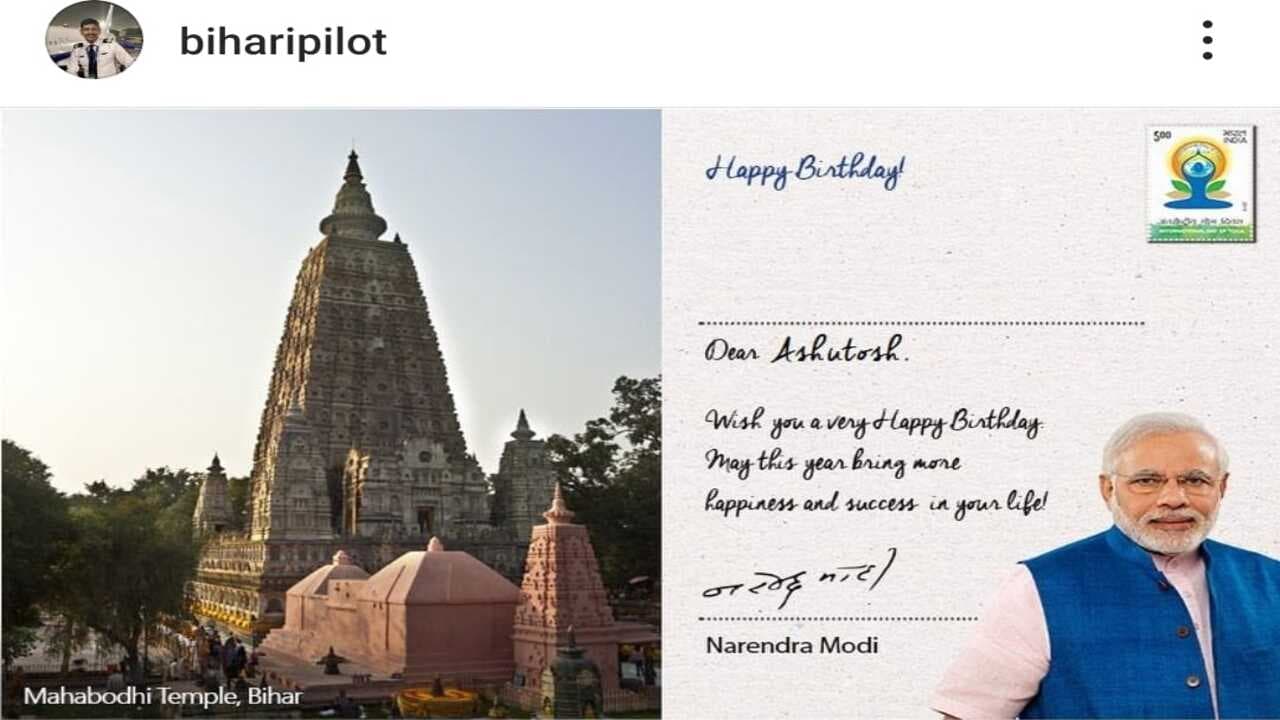 biharipilot
Happy Birthday!
5.00
भारत
INDIA
अंतर्राष्ट्रीय योग दिवस
INTERNATIONAL DAY OF YOGA
Dear Ashutosh.
Wish you a very Happy Birthday.
May this year bring more
happiness and success in your life!
नरेन्द्र मोदी
Narendra Modi
Mahabodhi Temple, Bihar